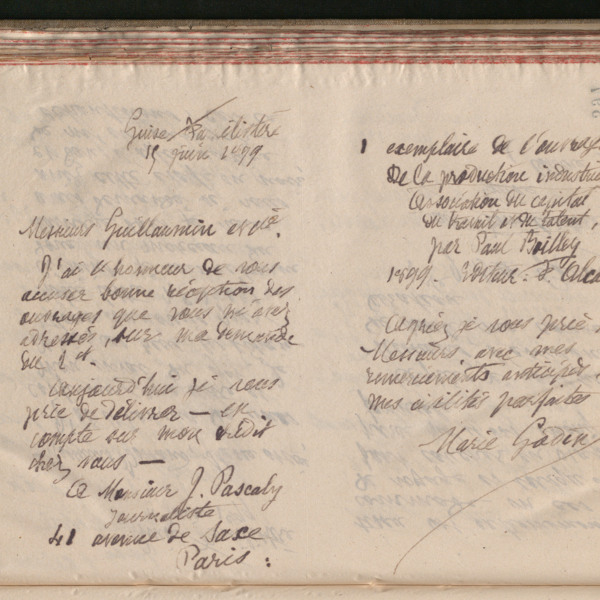 Guise Familistère
15 juin 1899
Messieurs Guillaumin et Cie.
J'ai l'honneur de vous
accuser bonne réception des
ouvrages que vous m'avez
adressés, sur ma demande
du 2 ct.
Aujourd'hui je vous
prie de délivrer — en
compte sur mon crédit
chez vous —
à Monsieur J. Pascaly
journaliste
41 avenue de Saxe
Paris :
1 exemplaire de l'ouvrage
De la production industrielle
Association du capital
du travail et du talent,
par Paul Boilley
1899. Editeur : F. Alcan
Agréez je vous prie
Messieurs, avec mes
remerciements anticipés
mes civilités parfaites
Marie Godin